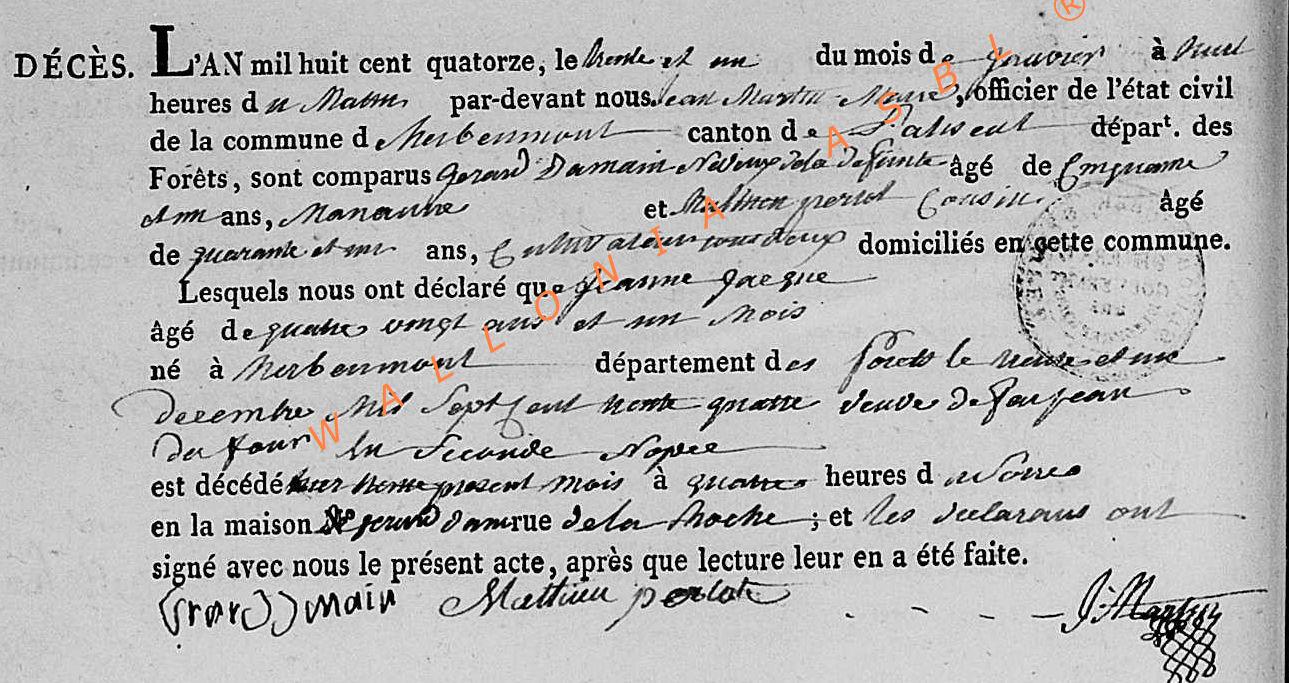 DÉCÈS. L'AN mil huit cent quatorze, le trente et un du mois de janvier à huit
heures du Matin par-devant nous Jean Martin Maire, officier de l'état civil
de la commune d herbeumont canton de Paliseul départ. des
Forêts, sont comparus Gerard Damain Neveux de la defunte âgé de Cinquante
et un ans, Manœuvre et Mathieu perlot Cousin âgé
de quarante et un ans, Cultivateur tous deux domiciliés en cette commune.
Lesquels nous ont déclaré que Jeanne Jacque
âgé de quatre vingt ans et un Mois
né à herbeumont département des forets le trente et un
decembre Mil Sept Cent trente quatre veuve de feu jean
Du four en Seconde Nopce
est décédé hier trente present mois à quatre heures du Soire
en la maison de gerard dam rue de la Roche; et les declarans ont
signé avec nous le présent acte, après que lecture leur en a été faite.
main Mathieu perlot J: Martin
WALLONIA ASBL ®